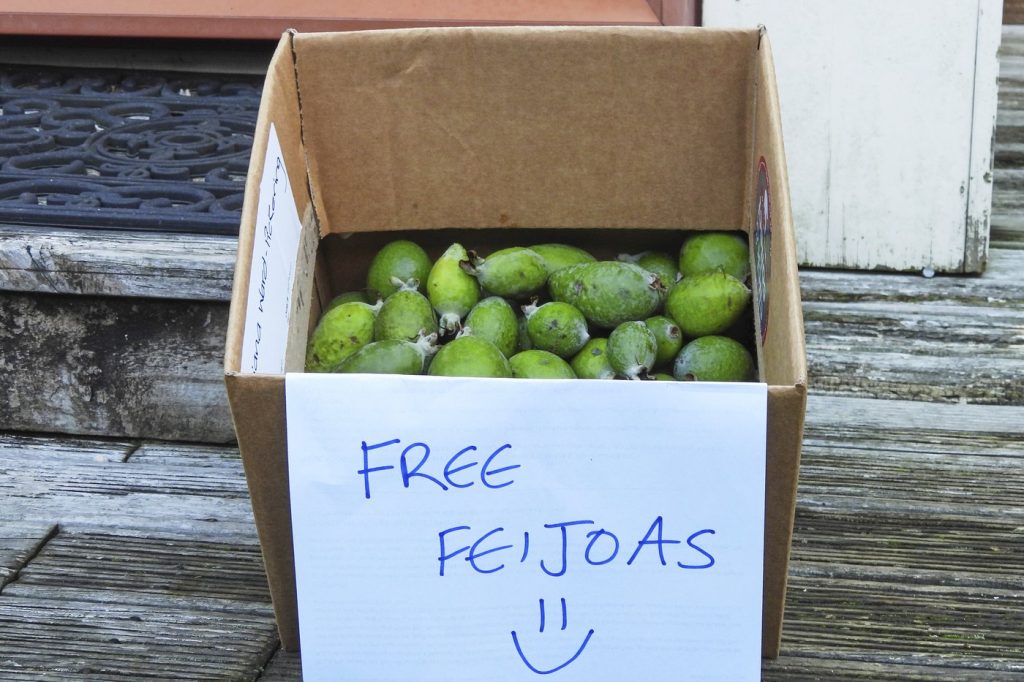 FREE
FEIJOAS